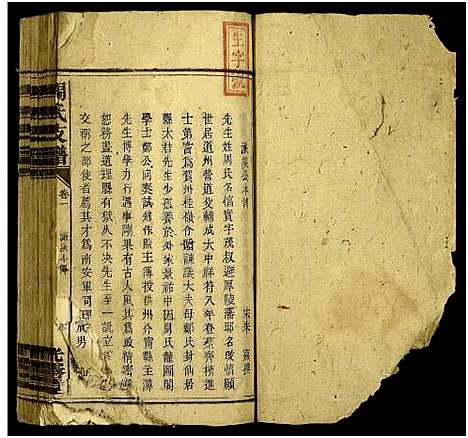 生字號
濂溪公本傳
宋朱 熹撰
先生姓周氏名信實字茂叔避厚陵藩邸名改惇頤
世居道州營道父輔成大中祥符八年登蔡齊榜進
士第嘗知賀州桂嶺贈諫議大夫母鄭氏封仙居
縣太君先生少孤養於外家景祐中因舅氏龍圖閣
學士鄭公向奏試將作監主簿授洪州分寧縣主簿
先生博學力行遇事剛果有古人風其為政精密嚴
恕務盡道理縣有獄久不決先生至一訊立辨眾口
交稱之部使者薦其才為南安軍司理
周氏支譜
卷一
濂溪本傳